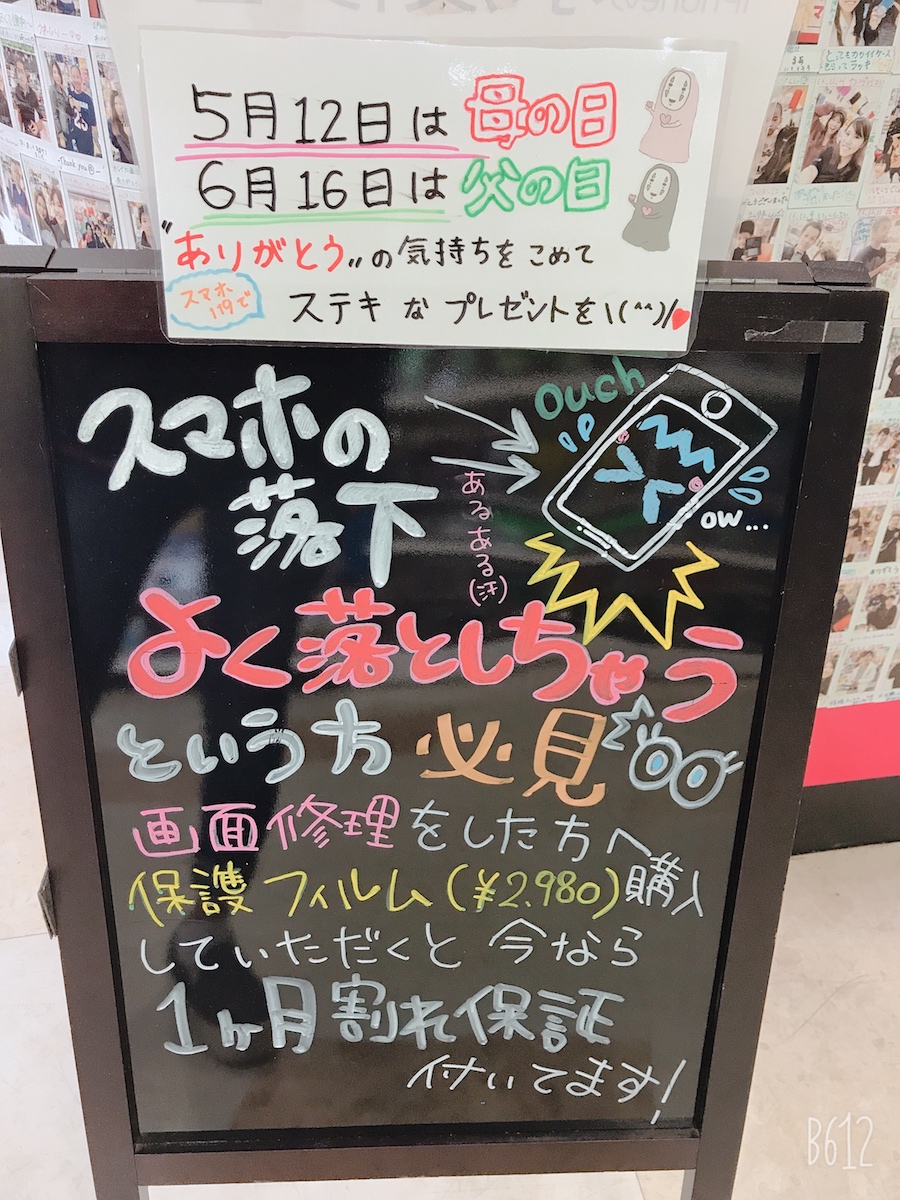 5月12日は母の日
6月16日は父の日
"ありがとう"の気持ちをこめて
スマホ
119で
ステキなプレゼントを\(^^)/
スマホの
落下
あるある(汗)
ouch
ow...
よく落としちゃう
という方 必見
画面修理をした方へ
保護フィルム(¥2.980)購入
していただくと 今なら
1ヶ月割れ保証
付いてます!
B612